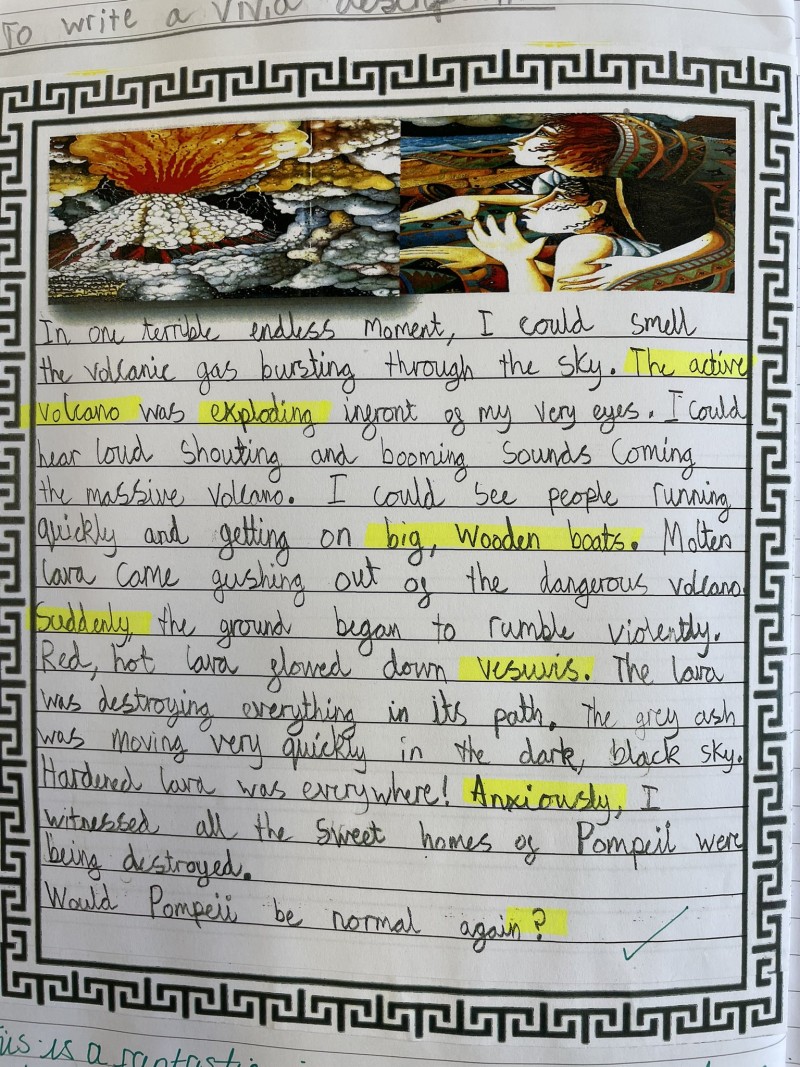 To write a vivid
In one terrible endless moment, I could smell
the volcanic gas bursting through the sky. The active
volcano was exploding infront of my very eyes. I could
hear loud shouting and booming sounds coming
the massive volcano. I could see people running
quickly and getting on big, wooden boats. Molten
lava came gushing out of the dangerous volcano.
Suddenly, the ground began to rumble violently.
Red, hot lava flowed down vesuvis. The lava
was destroying everything in its path. The grey ash
was moving very quickly in the dark, black sky.
Hardened lava was everywhere! Anxiously, I
witnessed all the sweet homes of Pompeii were
being destroyed.
Would Pompeii be normal again?
is is a fantastic